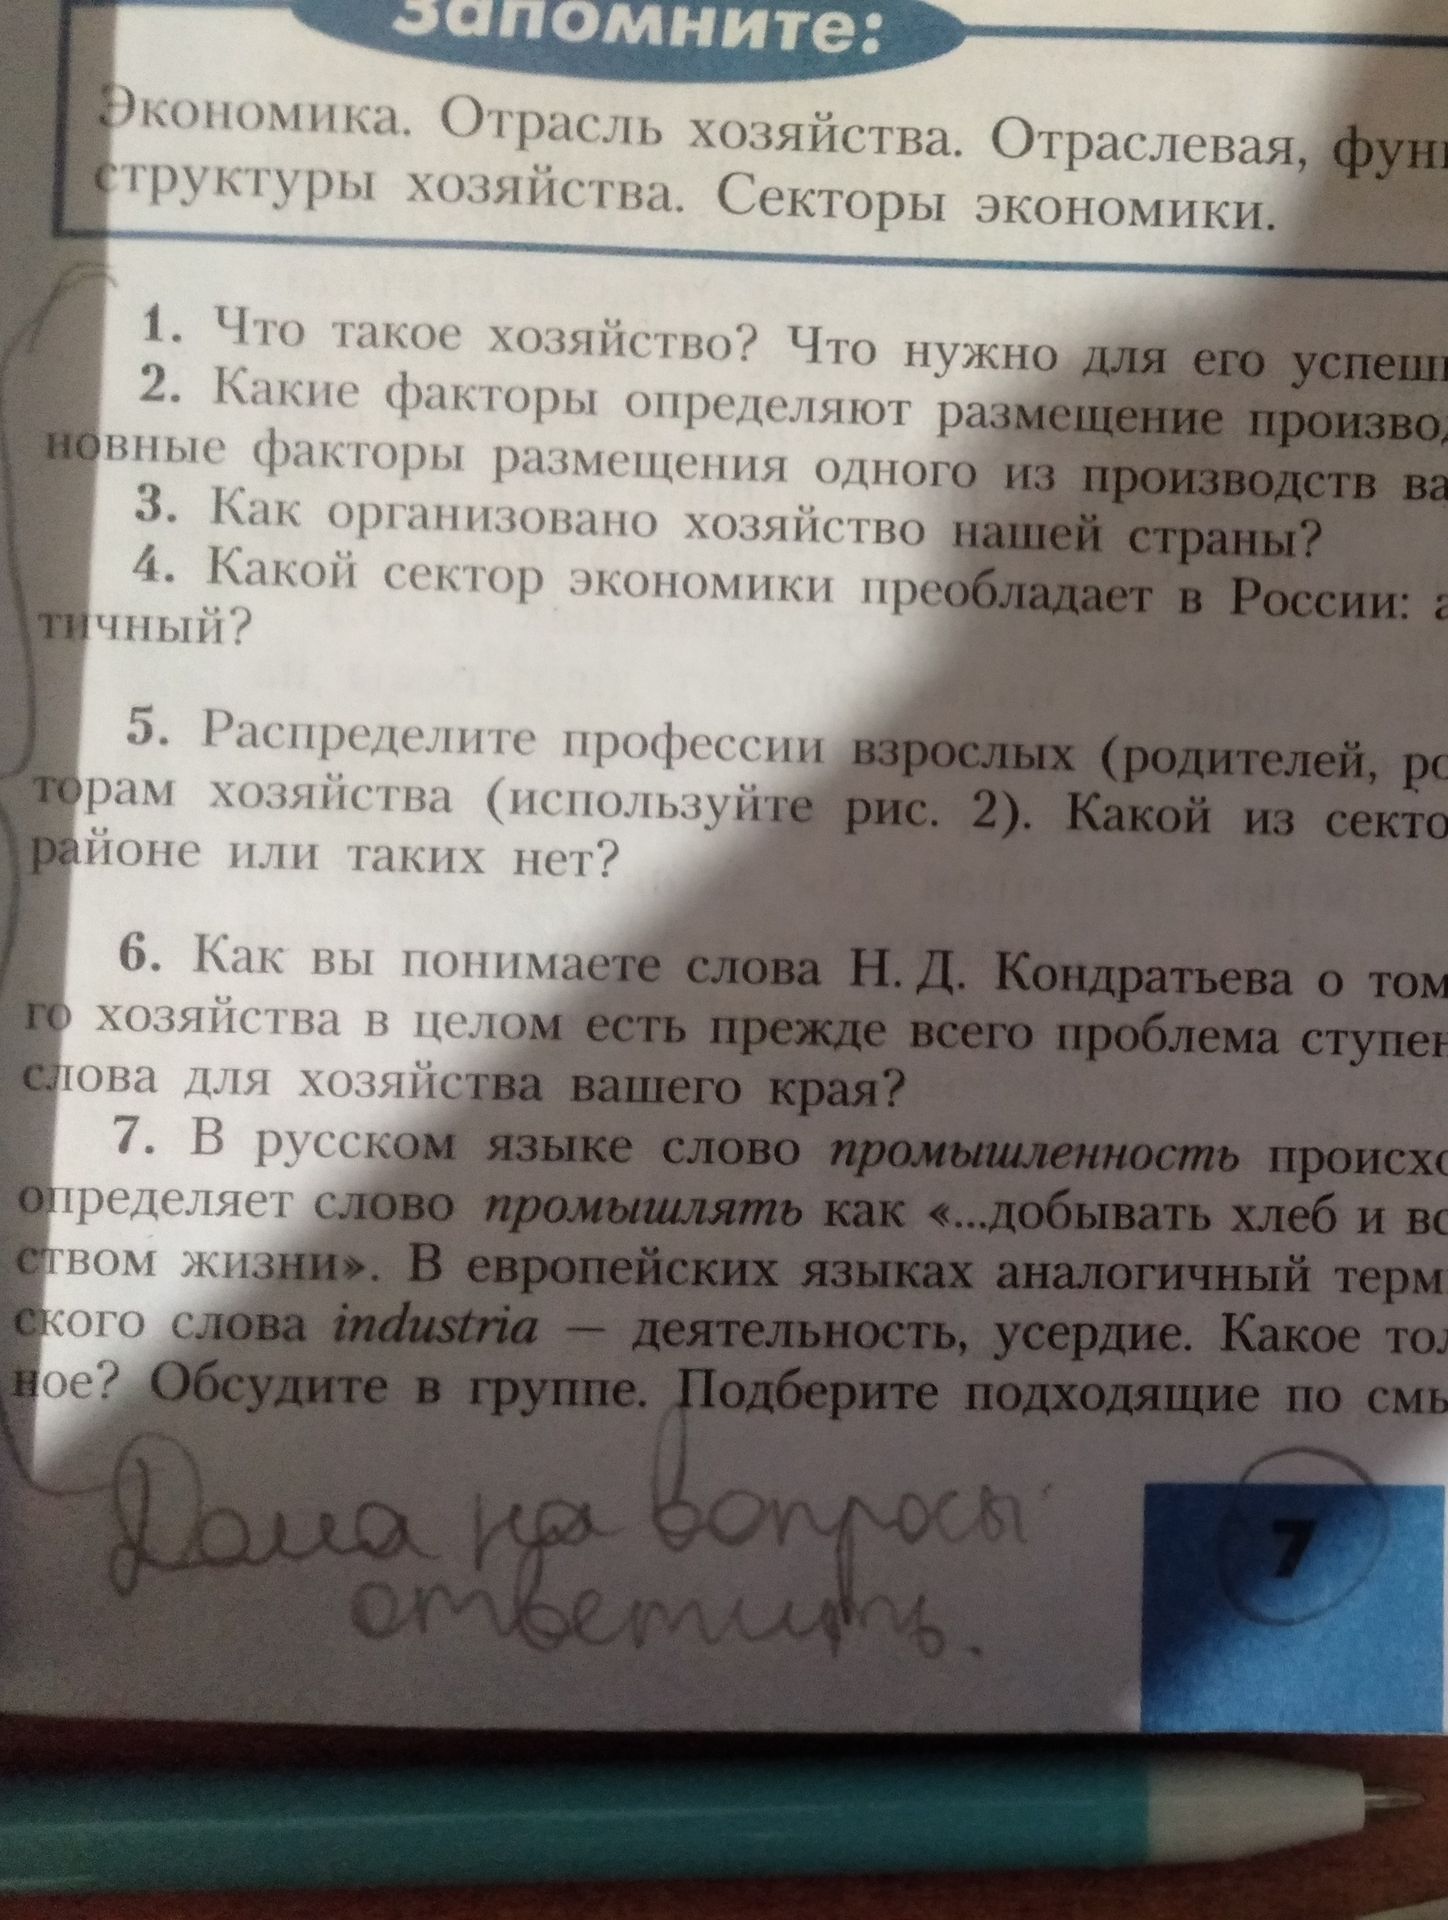 Запомните:
Экономика. Отрасль хозяйства. Отраслевая,
структуры хозяйства. Секторы экономики.
1. Что такое хозяйство? Что нужно для его
2. Какие факторы определяют размещение
новные факторы размещения одного из производств
3. Как организовано хозяйство нашей страны?
4. Какой сектор экономики преобладает в России:
тичный?
5. Распределите профессии взрослых (родителей,
торам хозяйства (используйте рис. 2). Какой из
районе или таких нет?
6. Как вы понимаете слова Н. Д. Кондратьева о том
го хозяйства в целом есть прежде всего проблема
слова для хозяйства вашего края?
7. В русском языке слово промышленность
определяет слово промышлять как «...добывать хлеб и
ством жизни». В европейских языках аналогичный
ского слова industria — деятельность, усердие. Какое
ное? Обсудите в группе. Подберите подходящие по
Дома на вопросы
ответить.
7